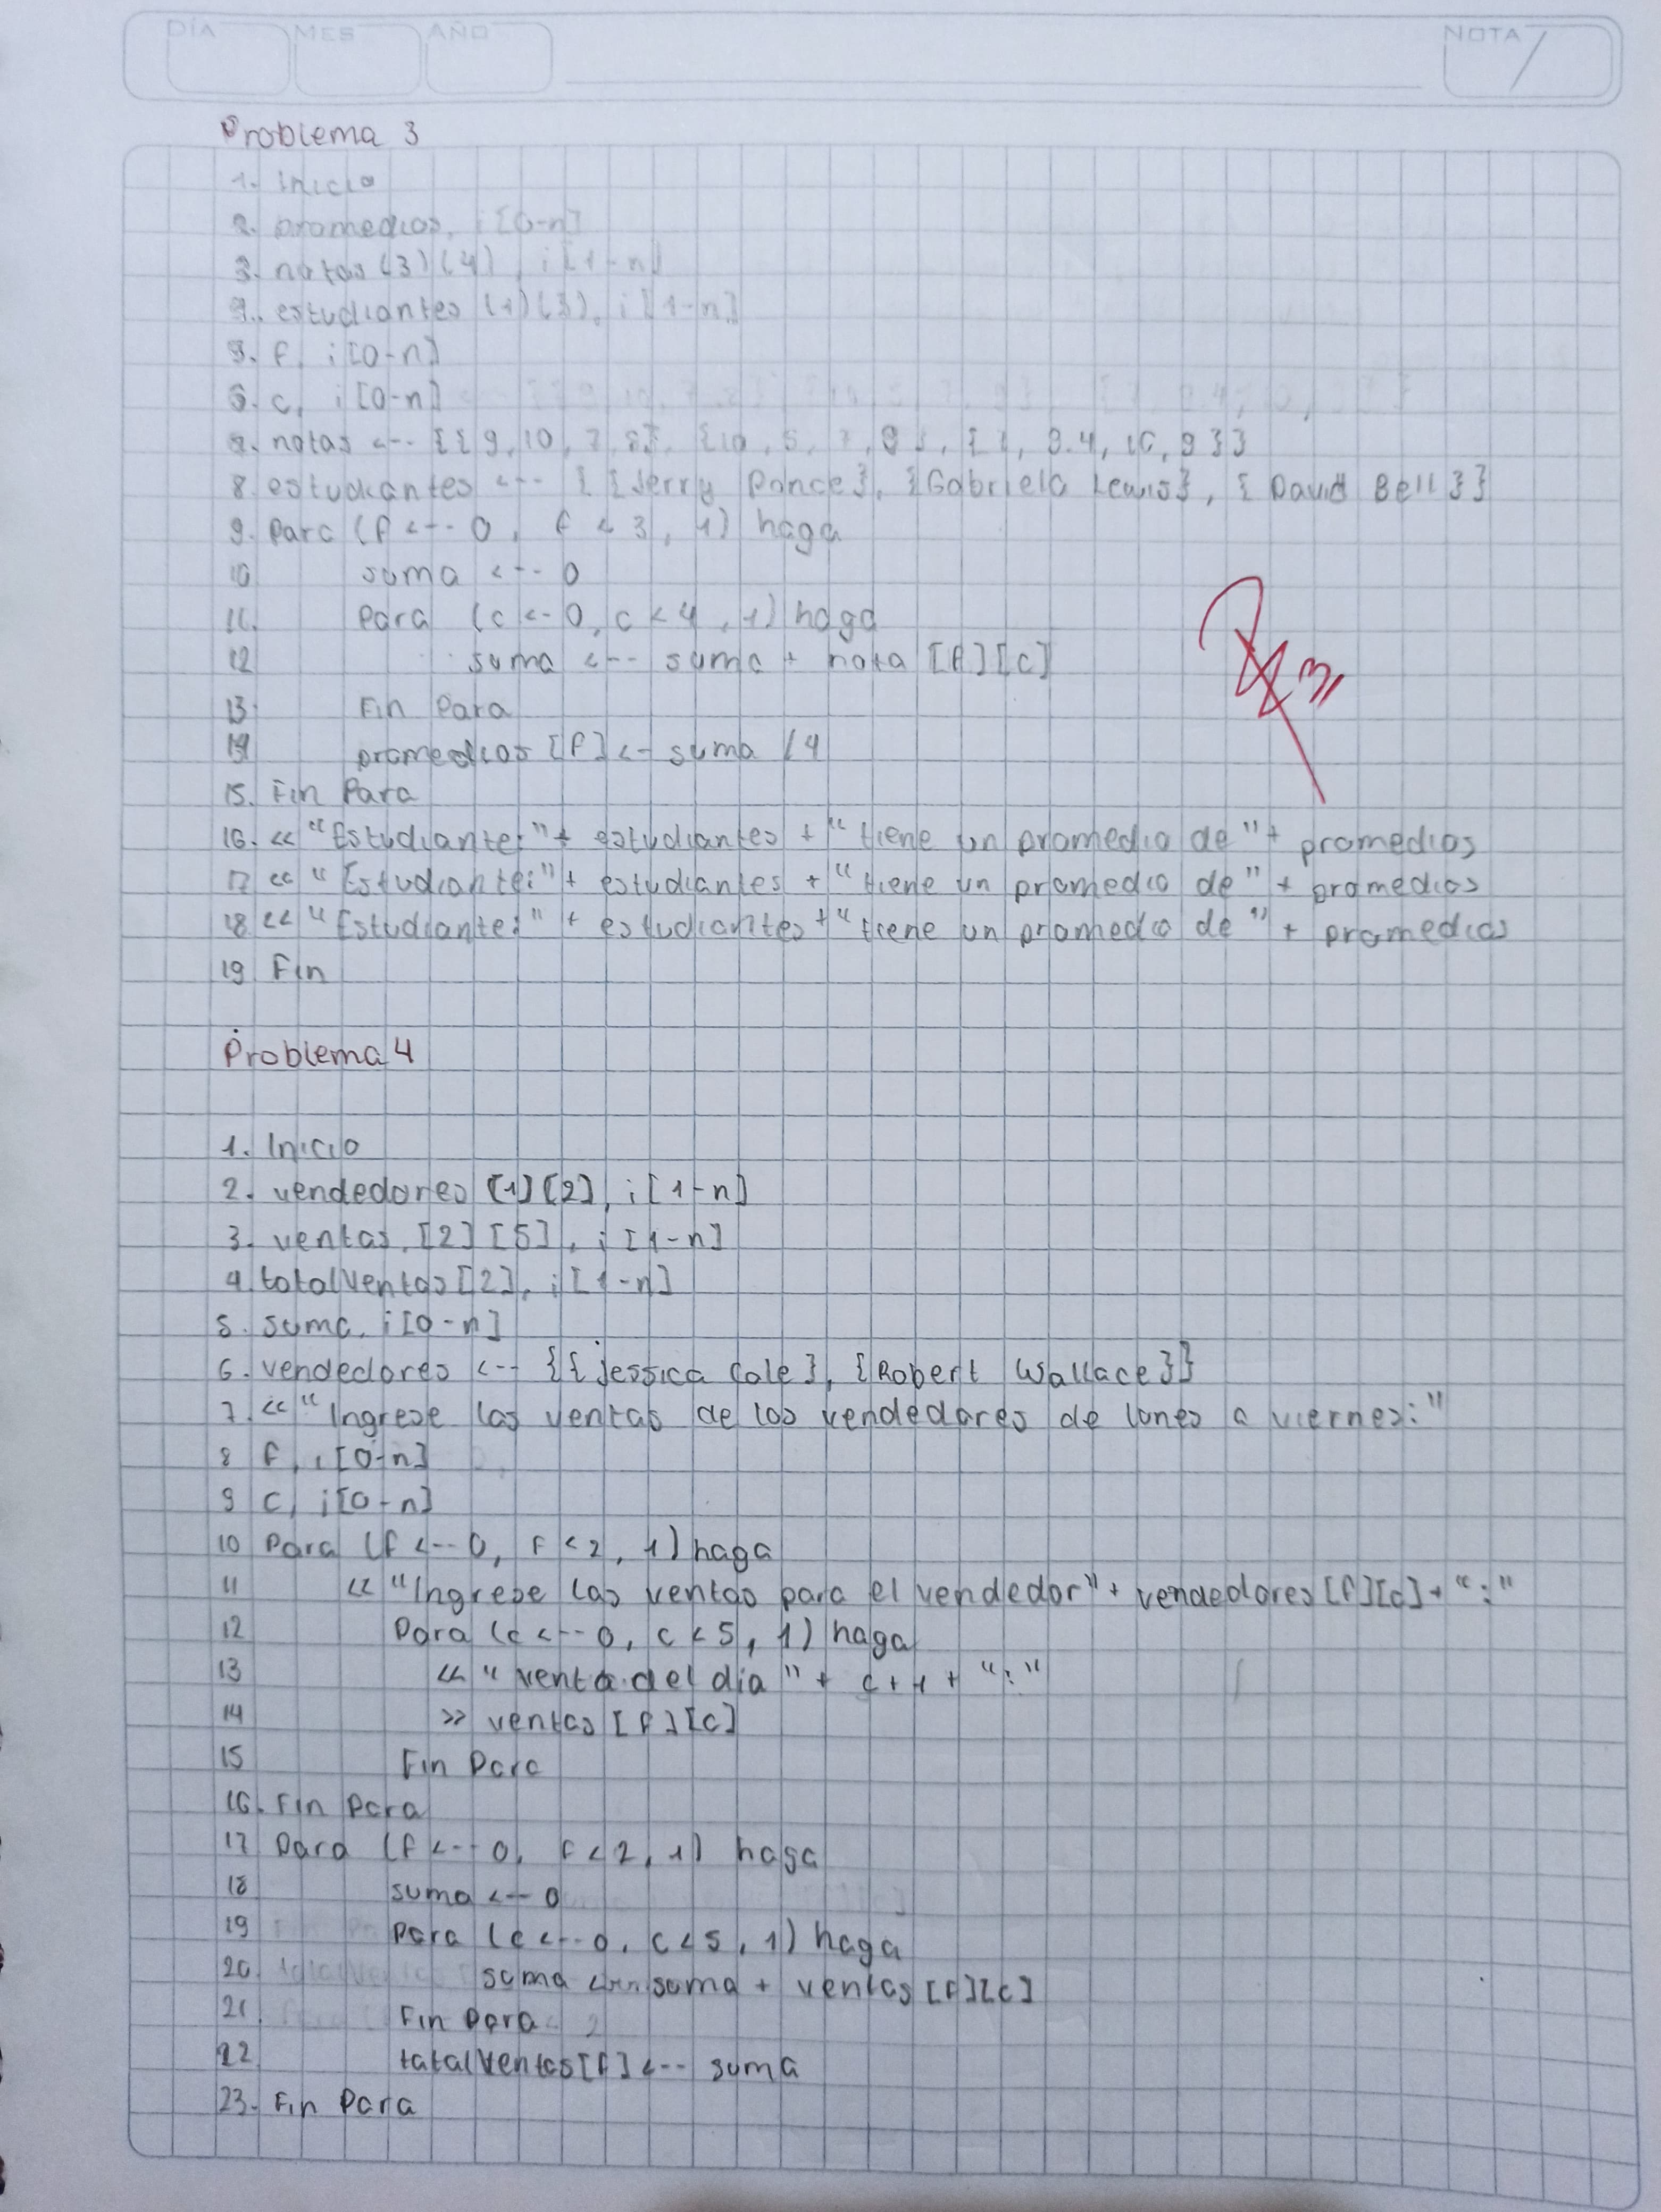 DÍA MES AÑO NOTA
Problema 3
1. Inicio
2. promedios, i[0-n]
3. notas (3)(4), i[1-n]
4. estudiantes (1)(3), i[1-n]
5. f, i[0-n]
6. c, i[0-n]
7. notas <-- {{9,10,7,8}, {10,5,7,9}, {7, 9.4, 10, 9}}
8. estudiantes <-- {{Jerry Ponce}, {Gabriela Lewis}, {David Bell}}
9. Para (f <-- 0, f < 3, 1) haga
10 suma <-- 0
11. Para (c <- 0, c < 4, 1) haga
12 suma <-- suma + nota [f][c]
13 Fin Para
14 promedios [f] <- suma /4
15. Fin Para
16. << "Estudiante:" + estudiantes + "tiene un promedio de" + promedios
17 << "Estudiante:" + estudiantes + "tiene un promedio de" + promedios
18 << "Estudiante:" + estudiantes + "tiene un promedio de" + promedios
19 Fin
Problema 4
1. Inicio
2. vendedores [1][2], i[1-n]
3. ventas, [2][5], i[1-n]
4. totalVentas[2], i[1-n]
5. suma, i[0-n]
6. vendedores <-- {{Jessica Cale}, {Robert Wallace}}
7. << "Ingrese las ventas de los vendedores de lunes a viernes:"
8 f, i[0-n]
9 c, i[0-n]
10 Para (f <-- 0, f < 2, 1) haga
11 << "Ingrese las ventas para el vendedor" + vendedores [f][c] + ":"
12 Para (c <-- 0, c < 5, 1) haga
13 << "venta del dia" + c+1 + ":"
14 >> ventas [f][c]
15 Fin Para
16. Fin Para
17 Para (f <-- 0, f < 2, 1) haga
18 suma <-- 0
19 Para (c <-- 0, c < 5, 1) haga
20. suma <-- suma + ventas [f][c]
21 Fin Para
22 totalVentas[f] <-- suma
23. Fin Para